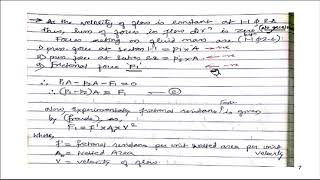 → As the velocity of flow is constant at 1-1 & 2-2
Thus, sum of forces in flow dirⁿ is zero
Forces acting on fluid mass are (1-1 & 2-2)
1) press. force at section 1-1 = P₁ x A → +ve
2) press. force at section 2-2 = P₂ x A ← -ve
3) frictional force 'F₁' ← -ve
∴ P₁A - P₂A - F₁ = 0
∴ (P₁-P₂)A = F₁ — ②
Now, Experimentally, frictional resistance is given
by (froude) as, F₁ = f' x Aw x V²
where,
f' = frictional resistance per unit wetted area per unit velocity
Aw = wetted Area
V = velocity of flow
7